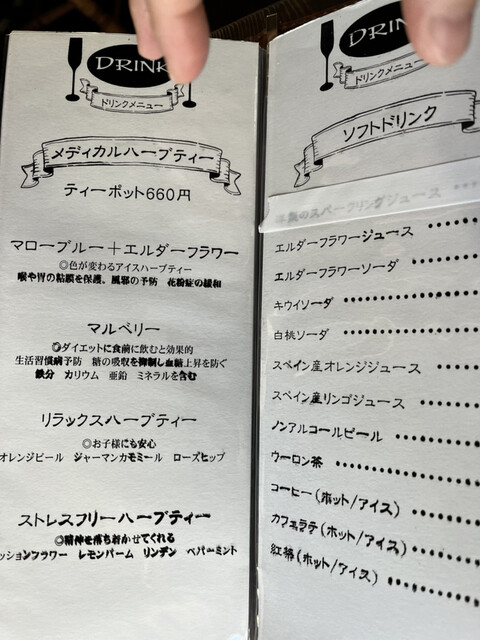 DRINK
ドリンクメニュー
メディカルハーブティー
ティーポット660円
マローブルー＋エルダーフラワー
◎色が変わるアイスハーブティー
喉や胃の粘膜を保護、風邪の予防 花粉症の緩和
マルベリー
◎ダイエットに食前に飲むと効果的
生活習慣病予防 糖の吸収を抑制し血糖上昇を防ぐ
鉄分 カリウム 亜鉛 ミネラルを含む
リラックスハーブティー
◎お子様にも安心
オレンジピール ジャーマンカモミール ローズヒップ
ストレスフリーハーブティー
◎精神を落ち着かせてくれる
ッションフラワー レモンバーム リンデン ペパーミント
DRINK
ドリンクメニュー
ソフトドリンク
のスパークリングジュース
エルダーフラワージュース
エルダーフラワーソーダ
キウイソーダ
白桃ソーダ
スペイン産オレンジジュース
スペイン産リンゴジュース
ノンアルコールビール
ウーロン茶
コーヒー(ホット/アイス)
カフェラテ(ホット/アイス)
紅茶(ホット/アイス)